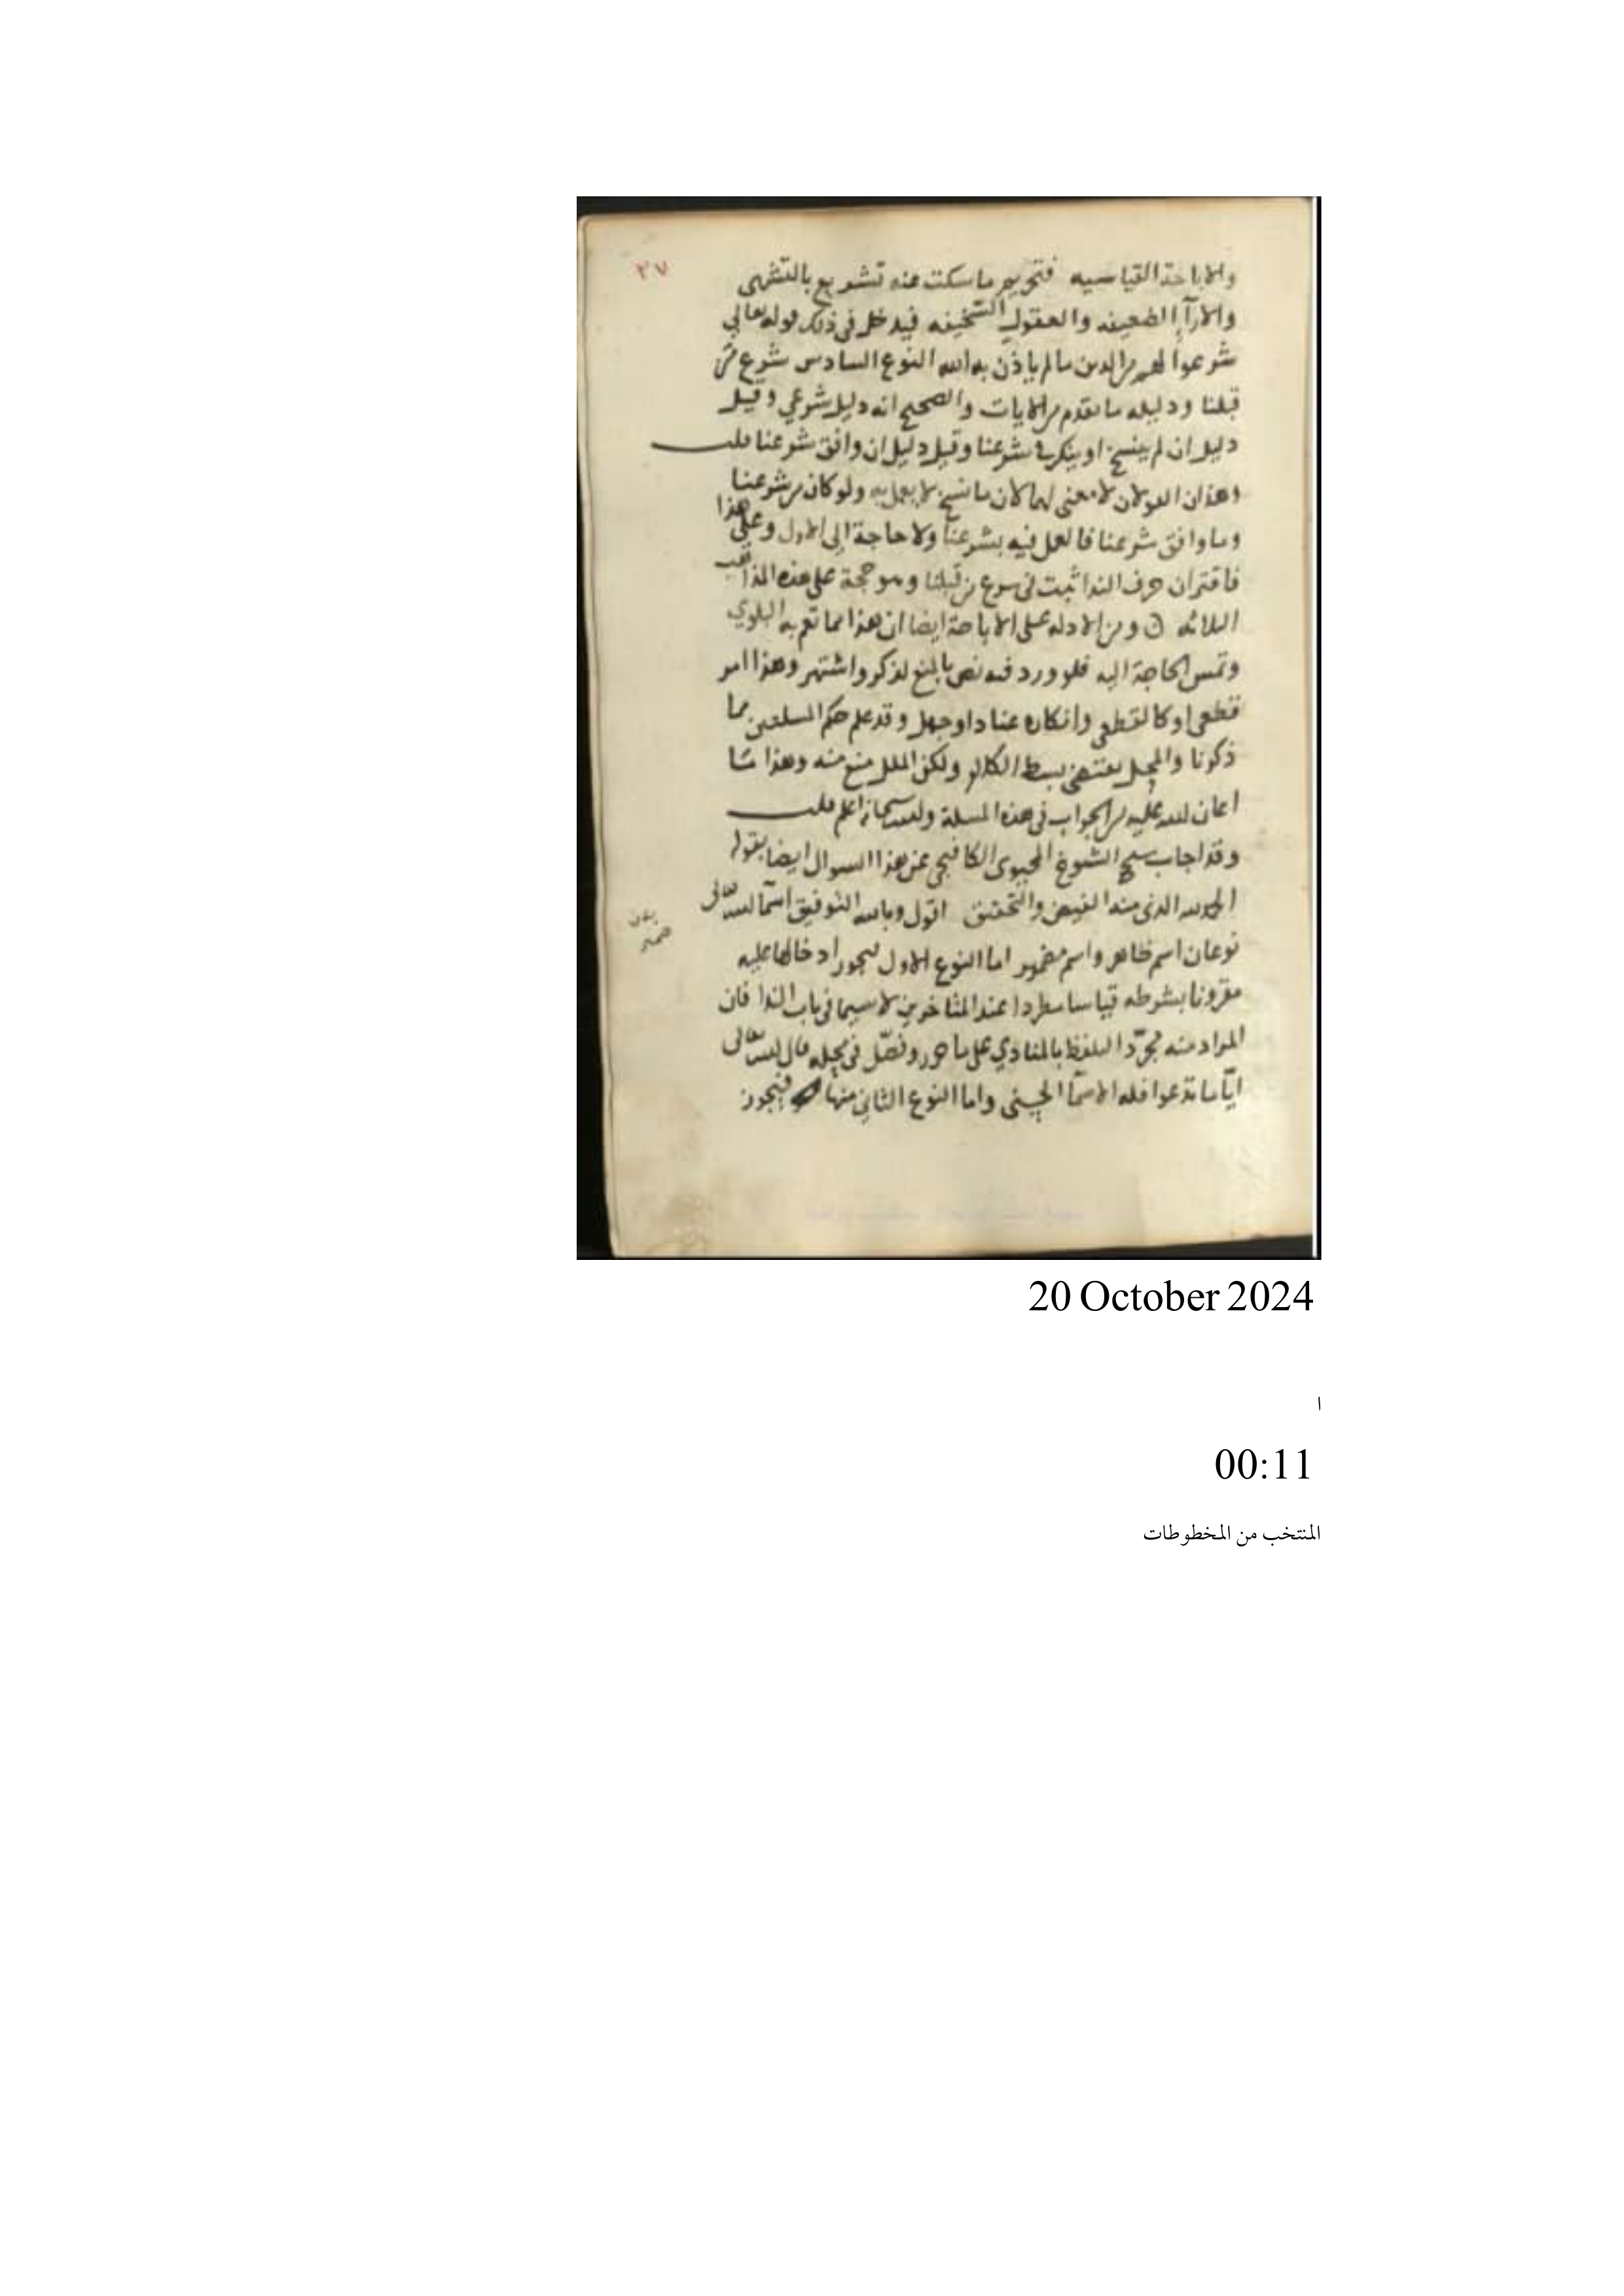 ٢٧
والاباحة القياسيه فتحريم ما سكت عنه تشريع بالتشهي
والارآ الضعيفه والعقول السخيفه فيدخل في ذلك قوله تعالى
شرعوا لهم من الدين ما لم ياذن به الله النوع السادس شرع من
قبلنا ودليله ما تقدم من الايات والصحيح انه دليل شرعي وقيل
دليل ان لم ينسخ او ينكر في شرعنا وقيل دليل ان وافق شرعنا قلت
وهذان القولان لا معنى لهما لان ما نسخ لا يعمل به ولو كان من شرعنا
وما وافق شرعنا فالعمل فيه بشرعنا ولا حاجة الى الاول وعلى هذا
فاقتران حرف الندا ثبت في شرع من قبلنا وهو حجة على هذه المذاهب
الثلاثه ومن الادله على الاباحة ايضا ان هذا مما تعم به البلوي
وتمس الحاجة اليه فلو ورد فيه نص بالمنع لذكر واشتهر وهذا امر
قطعي او كالقطعي وانكاره عناد او جهل وقد علم حكم المسلتين مما
ذكرنا والمحل يقتضي بسط الكلام ولكن الملل منع منه وهذا ما
اعان الله عليه من الجواب في هذه المسلة والله سبحانه اعلم قلت
وقد اجاب شيخ الشيوخ المحيوي الكافيجي عن هذا السوال ايضا بقوله
الحمد لله الذي منه الفيض والتحقيق اقول وبالله التوفيق اسمآ الله تعالى
نوعان اسم ظاهر واسم مضمر اما النوع الاول فيجوز ادخالها عليه
مقرونا بشرطه قياسا مطردا عند المتاخرين لا سيما في باب الندا فان
المراد منه مجرّد التلفظ بالمنادي على ما حرر وفصّل في محله قال الله تعالى
ايّا ما تدعوا فله الاسمآ الحسنى واما النوع الثاني منها فيجوز
20 October 2024
ا
00:11
المنتخب من المخطوطات